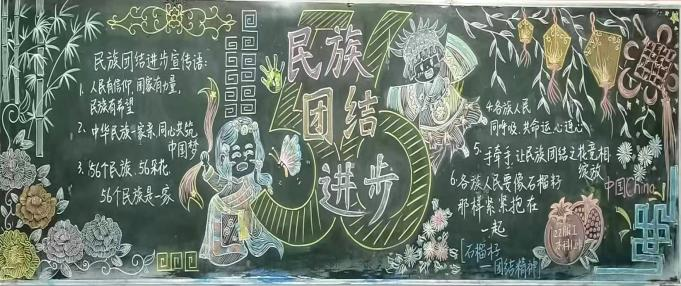 民族团结进步宣传语:
1. 人民有信仰 国家有力量,
民族有希望
2. 中华民族一家亲,同心共筑
中国梦
3. "56个民族、56朵花,
56个民族是一家
56
民族
团结
进步
4. 各族人民
同呼吸、共命运、心连心
5. 手牵手,让民族团结之花竞相
绽放
6. 各族人民要像石榴籽
那样紧紧抱在
一起
[石榴籽
—团结精神]
中国China